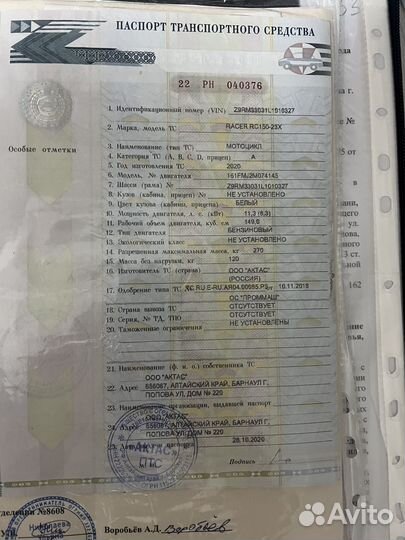 ПАСПОРТ ТРАНСПОРТНОГО СРЕДСТВА
22 РН 040376
Особые отметки
1. Идентификационный номер (VIN) Z9RM33031L1010327
2. Марка, модель ТС RACER RC150-23X
3. Наименование (тип ТС) МОТОЦИКЛ
4. Категория ТС (A, B, C, D, прицеп) A
5. Год изготовления ТС 2020
6. Модель, № двигателя 161FMJ2M074145
7. Шасси (рама) № Z9RM33031L1010327
8. Кузов (кабина, прицеп) № НЕ УСТАНОВЛЕНО
9. Цвет кузова (кабины, прицепа) БЕЛЫЙ
10. Мощность двигателя, л. с. (кВт) 11,3 (8,3)
11. Рабочий объем двигателя, куб. см 149,6
12. Тип двигателя БЕНЗИНОВЫЙ
13. Экологический класс НЕ УСТАНОВЛЕНО
14. Разрешенная максимальная масса, кг 270
15. Масса без нагрузки, кг 120
16. Изготовитель ТС (страна) ООО "АКТАС"
(РОССИЯ)
17. Одобрение типа ТС № ТС RU E-RU.АЯ04.00055.Р3 от 10.11.2018
ОС "ПРОММАШ"
18. Страна вывоза ТС ОТСУТСТВУЕТ
19. Серия, № ТД, ТПО ОТСУТСТВУЕТ
20. Таможенные ограничения НЕ УСТАНОВЛЕНЫ
21. Наименование (ф. и. о.) собственника ТС
ООО "АКТАС"
22. Адрес 656067, АЛТАЙСКИЙ КРАЙ, БАРНАУЛ Г,
ПОПОВА УЛ, ДОМ № 220
23. Наименование организации, выдавшей паспорт
ООО "АКТАС"
24. Адрес 656067, АЛТАЙСКИЙ КРАЙ, БАРНАУЛ Г,
ПОПОВА УЛ, ДОМ № 220
25. Дата выдачи паспорта 28.10.2020
"АКТАС"
ПТС
Подпись
162
№8608
Воробьёв А.Д. Воробьёв
Avito